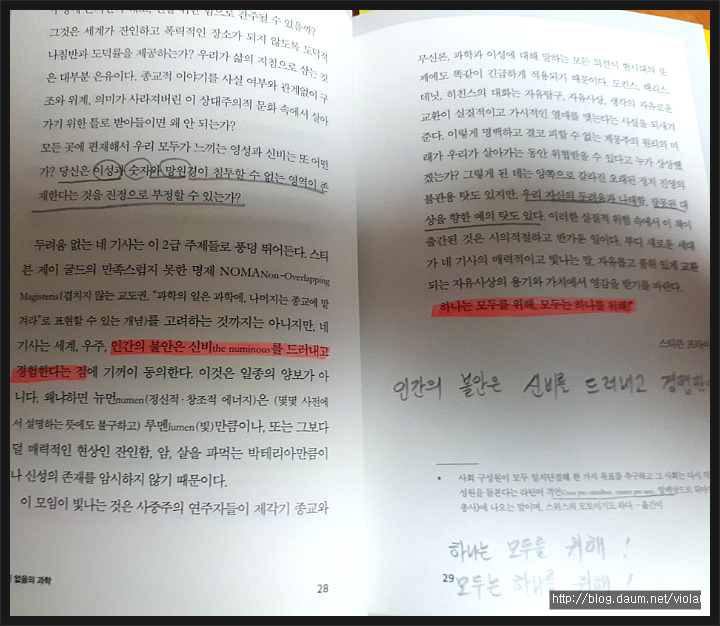 그것은 세계가 잔인하고 폭력적인 장소가 되지 않도록 도덕적
나침반과 도덕률을 제공하는가? 우리가 삶의 지침으로 삼는 것
은 대부분 은유이다. 종교적 이야기를 사실 여부와 관계없이 구
조와 위계, 의미가 사라져버린 이 상대주의적 문화 속에서 살아
가기 위한 틀로 받아들이면 왜 안 되는가?
모든 곳에 편재해서 우리 모두가 느끼는 영성과 신비는 또 어떤
가? 당신은 이성과 숫자와 망원경이 침투할 수 없는 영역이 존
재한다는 것을 진정으로 부정할 수 있는가?
두려움 없는 네 기사는 이 2급 주제들로 풍덩 뛰어든다. 스티
븐 제이 굴드의 만족스럽지 못한 명제 NOMANon-Overlapping
Magisteria(겹치지 않는 교도권. "과학의 일은 과학에, 나머지는 종교에 맡
겨라"로 표현할 수 있는 개념)를 고려하는 것까지는 아니지만, 네
기사는 세계, 우주, 인간의 불안은 신비the numinous를 드러내고
경험한다는 점에 기꺼이 동의한다. 이것은 일종의 양보가 아
니다. 왜냐하면 뉴먼numen(정신적·창조적 에너지)은 (몇몇 사전에
서 설명하는 뜻에도 불구하고) 루멘lumen(빛)만큼이나, 또는 그보다
덜 매력적인 현상인 잔인함, 암, 살을 파먹는 박테리아만큼이
나 신성의 존재를 암시하지 않기 때문이다.
이 모임이 빛나는 것은 사중주의 연주자들이 제각기 종교와
없음의 과학
28
무신론, 과학과 이성에 대해 말하는 모든 의견이 현시대의 문
제에도 똑같이 긴급하게 적용되기 때문이다. 도킨스, 해리스,
데닛, 히친스의 대화는 자유탐구, 자유사상, 생각의 자유로운
교환이 실질적이고 가시적인 열매를 맺는다는 사실을 되새겨
준다. 이렇게 명백하고 결코 피할 수 없는 계몽주의 원리의 미
래가 우리가 살아가는 동안 위협받을 수 있다고 누가 상상했
겠는가? 그렇게 된 데는 양쪽으로 갈라진 오래된 정치 진영의
불관용 탓도 있지만, 우리 자신의 두려움과 나태함, 잘못된 대
상을 향한 예의 탓도 있다. 이러한 실질적 위협 속에서 이 책이
출간된 것은 시의적절하고 반가운 일이다. 부디 새로운 세대
가 네 기사의 매력적이고 빛나는 말, 자유롭고 품위 있게 교환
되는 자유사상의 용기와 가치에서 영감을 받기를 바란다.
하나는 모두를 위해, 모두는 하나를 위해!*
스티븐 프라이
인간의 불안은 신비를 드러내고 경험한
• 사회 구성원이 모두 일치단결해 한 가지 목표를 추구하고 그 사회는 다시 각
성원을 돕는다는 라틴어 격언
총사》에 나오는 말이며, 스위스의 모토이기도 하다. -옮긴이
하나는 모두를 위해!
29
모두는 하나를 위해!
http://blog.daum.net/violal